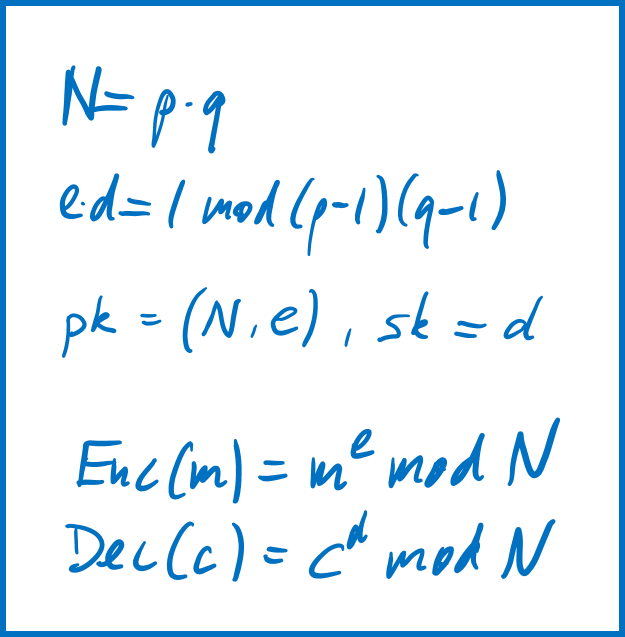 N = p·q
e·d = 1 mod (p-1)(q-1)
pk = (N, e), sk = d
Enc(m) = m^e mod N
Dec(c) = c^d mod N